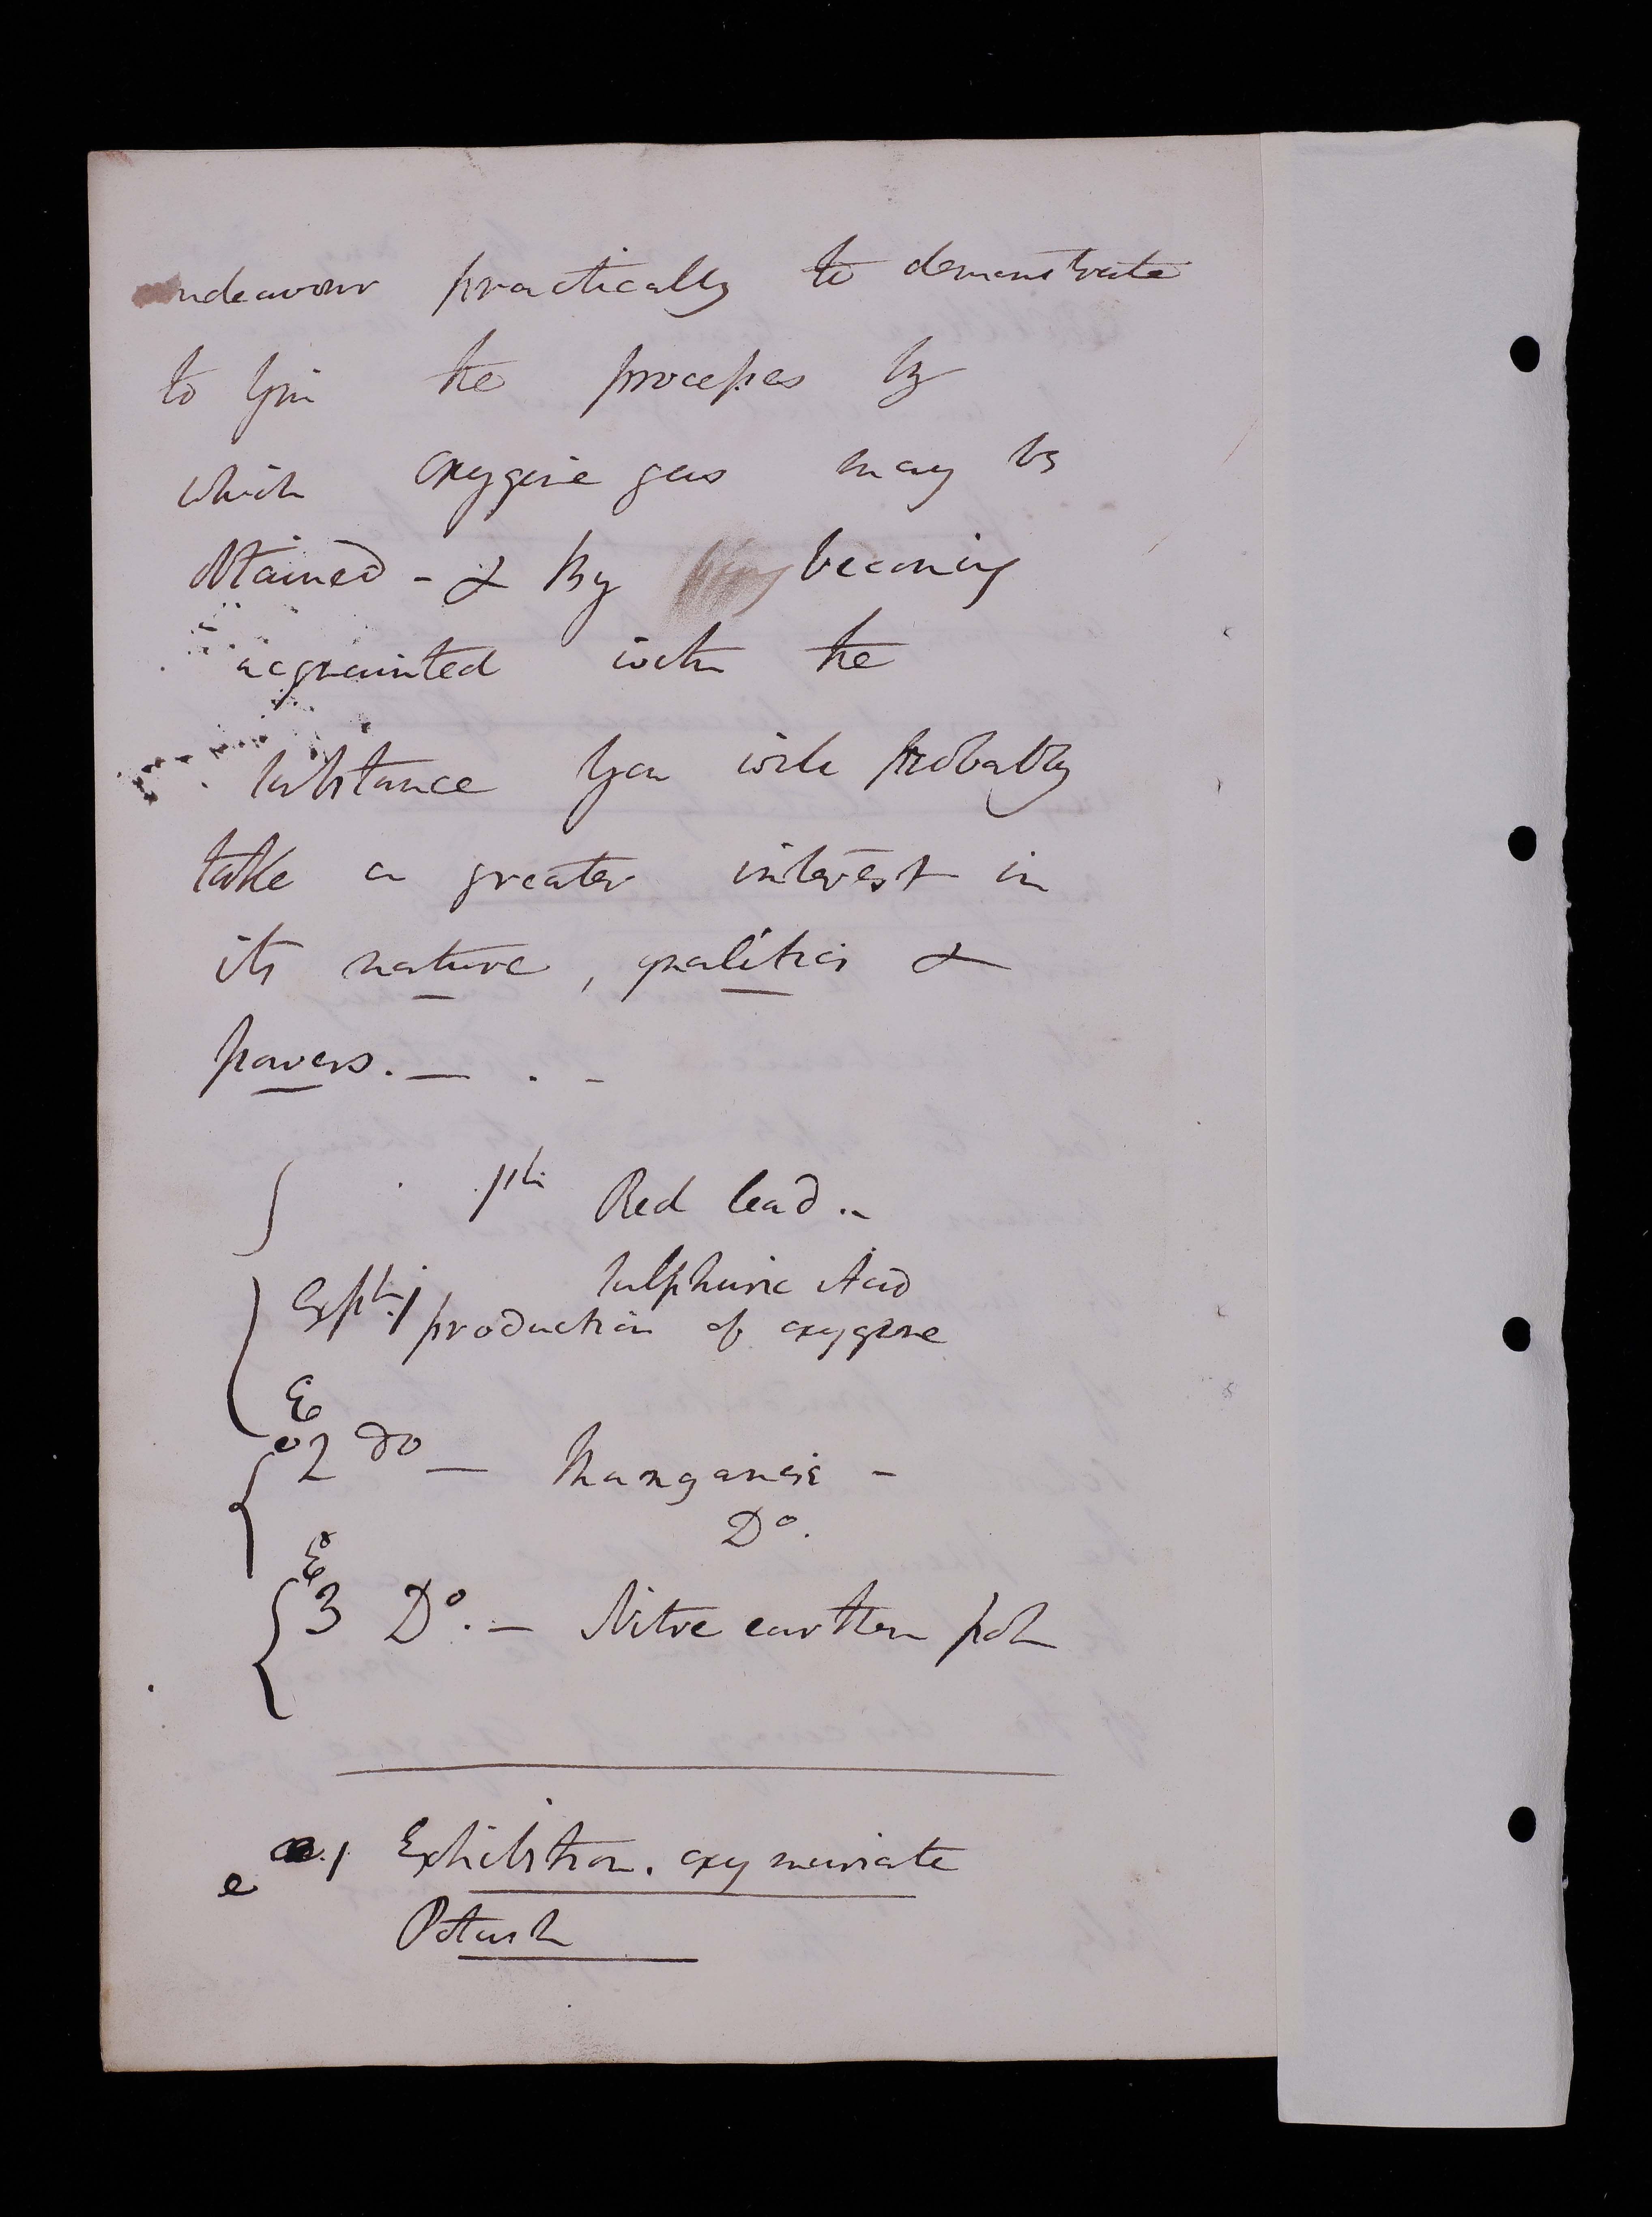 endeavour practically to demonstrate
to you the processes by
which oxygene gas may be
obtained - & by becoming
acquainted with the
substance you will probably
take a greater interest in
its nature, qualities &
powers. —
Red lead. -
Sulphuric Acid
production of oxygene
2 do — Manganese -
Do.
3 Do. — Nitre earthen pot
1 Exhibition. oxymuriate
Potash